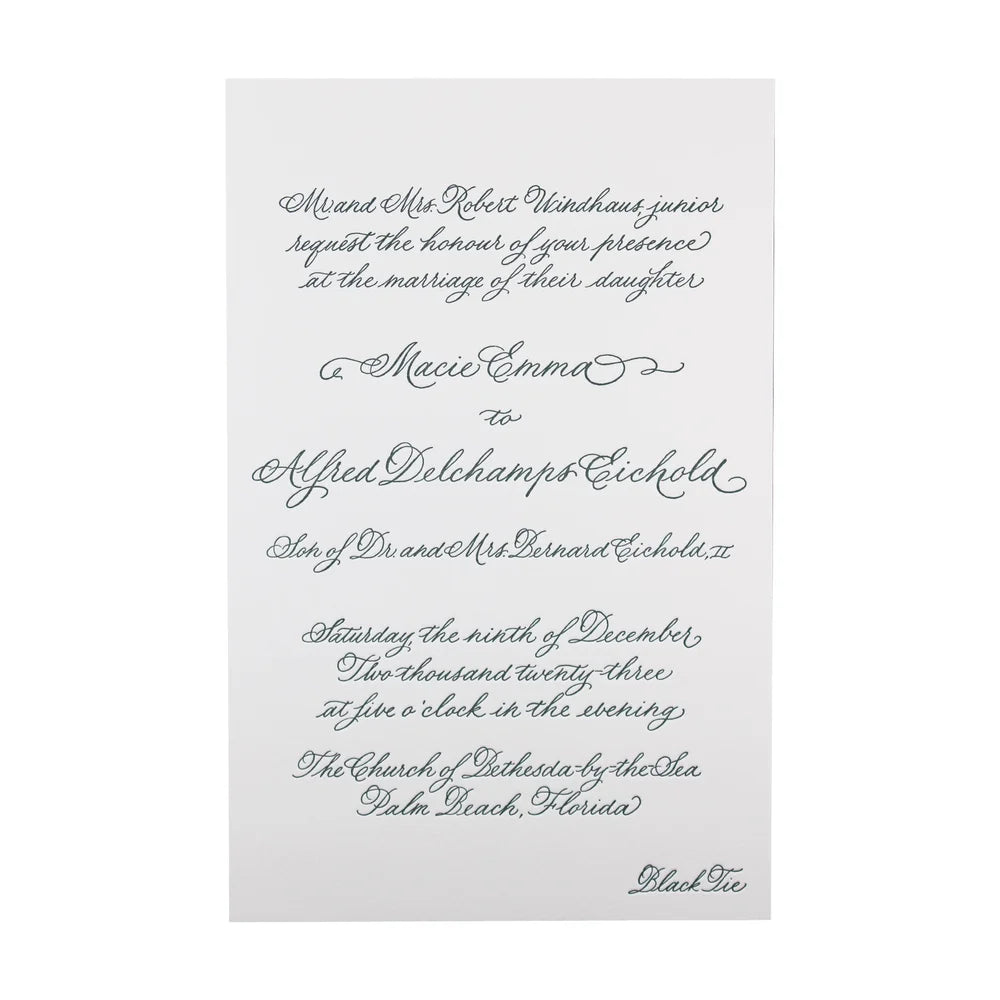 Mr. and Mrs. Robert Windhaus, junior
request the honour of your presence
at the marriage of their daughter
Macie Emma
to
Alfred Delchamps Eichold
Son of Dr. and Mrs. Bernard Eichold, II
Saturday, the ninth of December
Two thousand twenty-three
at five o'clock in the evening
The Church of Bethesda-by-the-Sea
Palm Beach, Florida
Black Tie